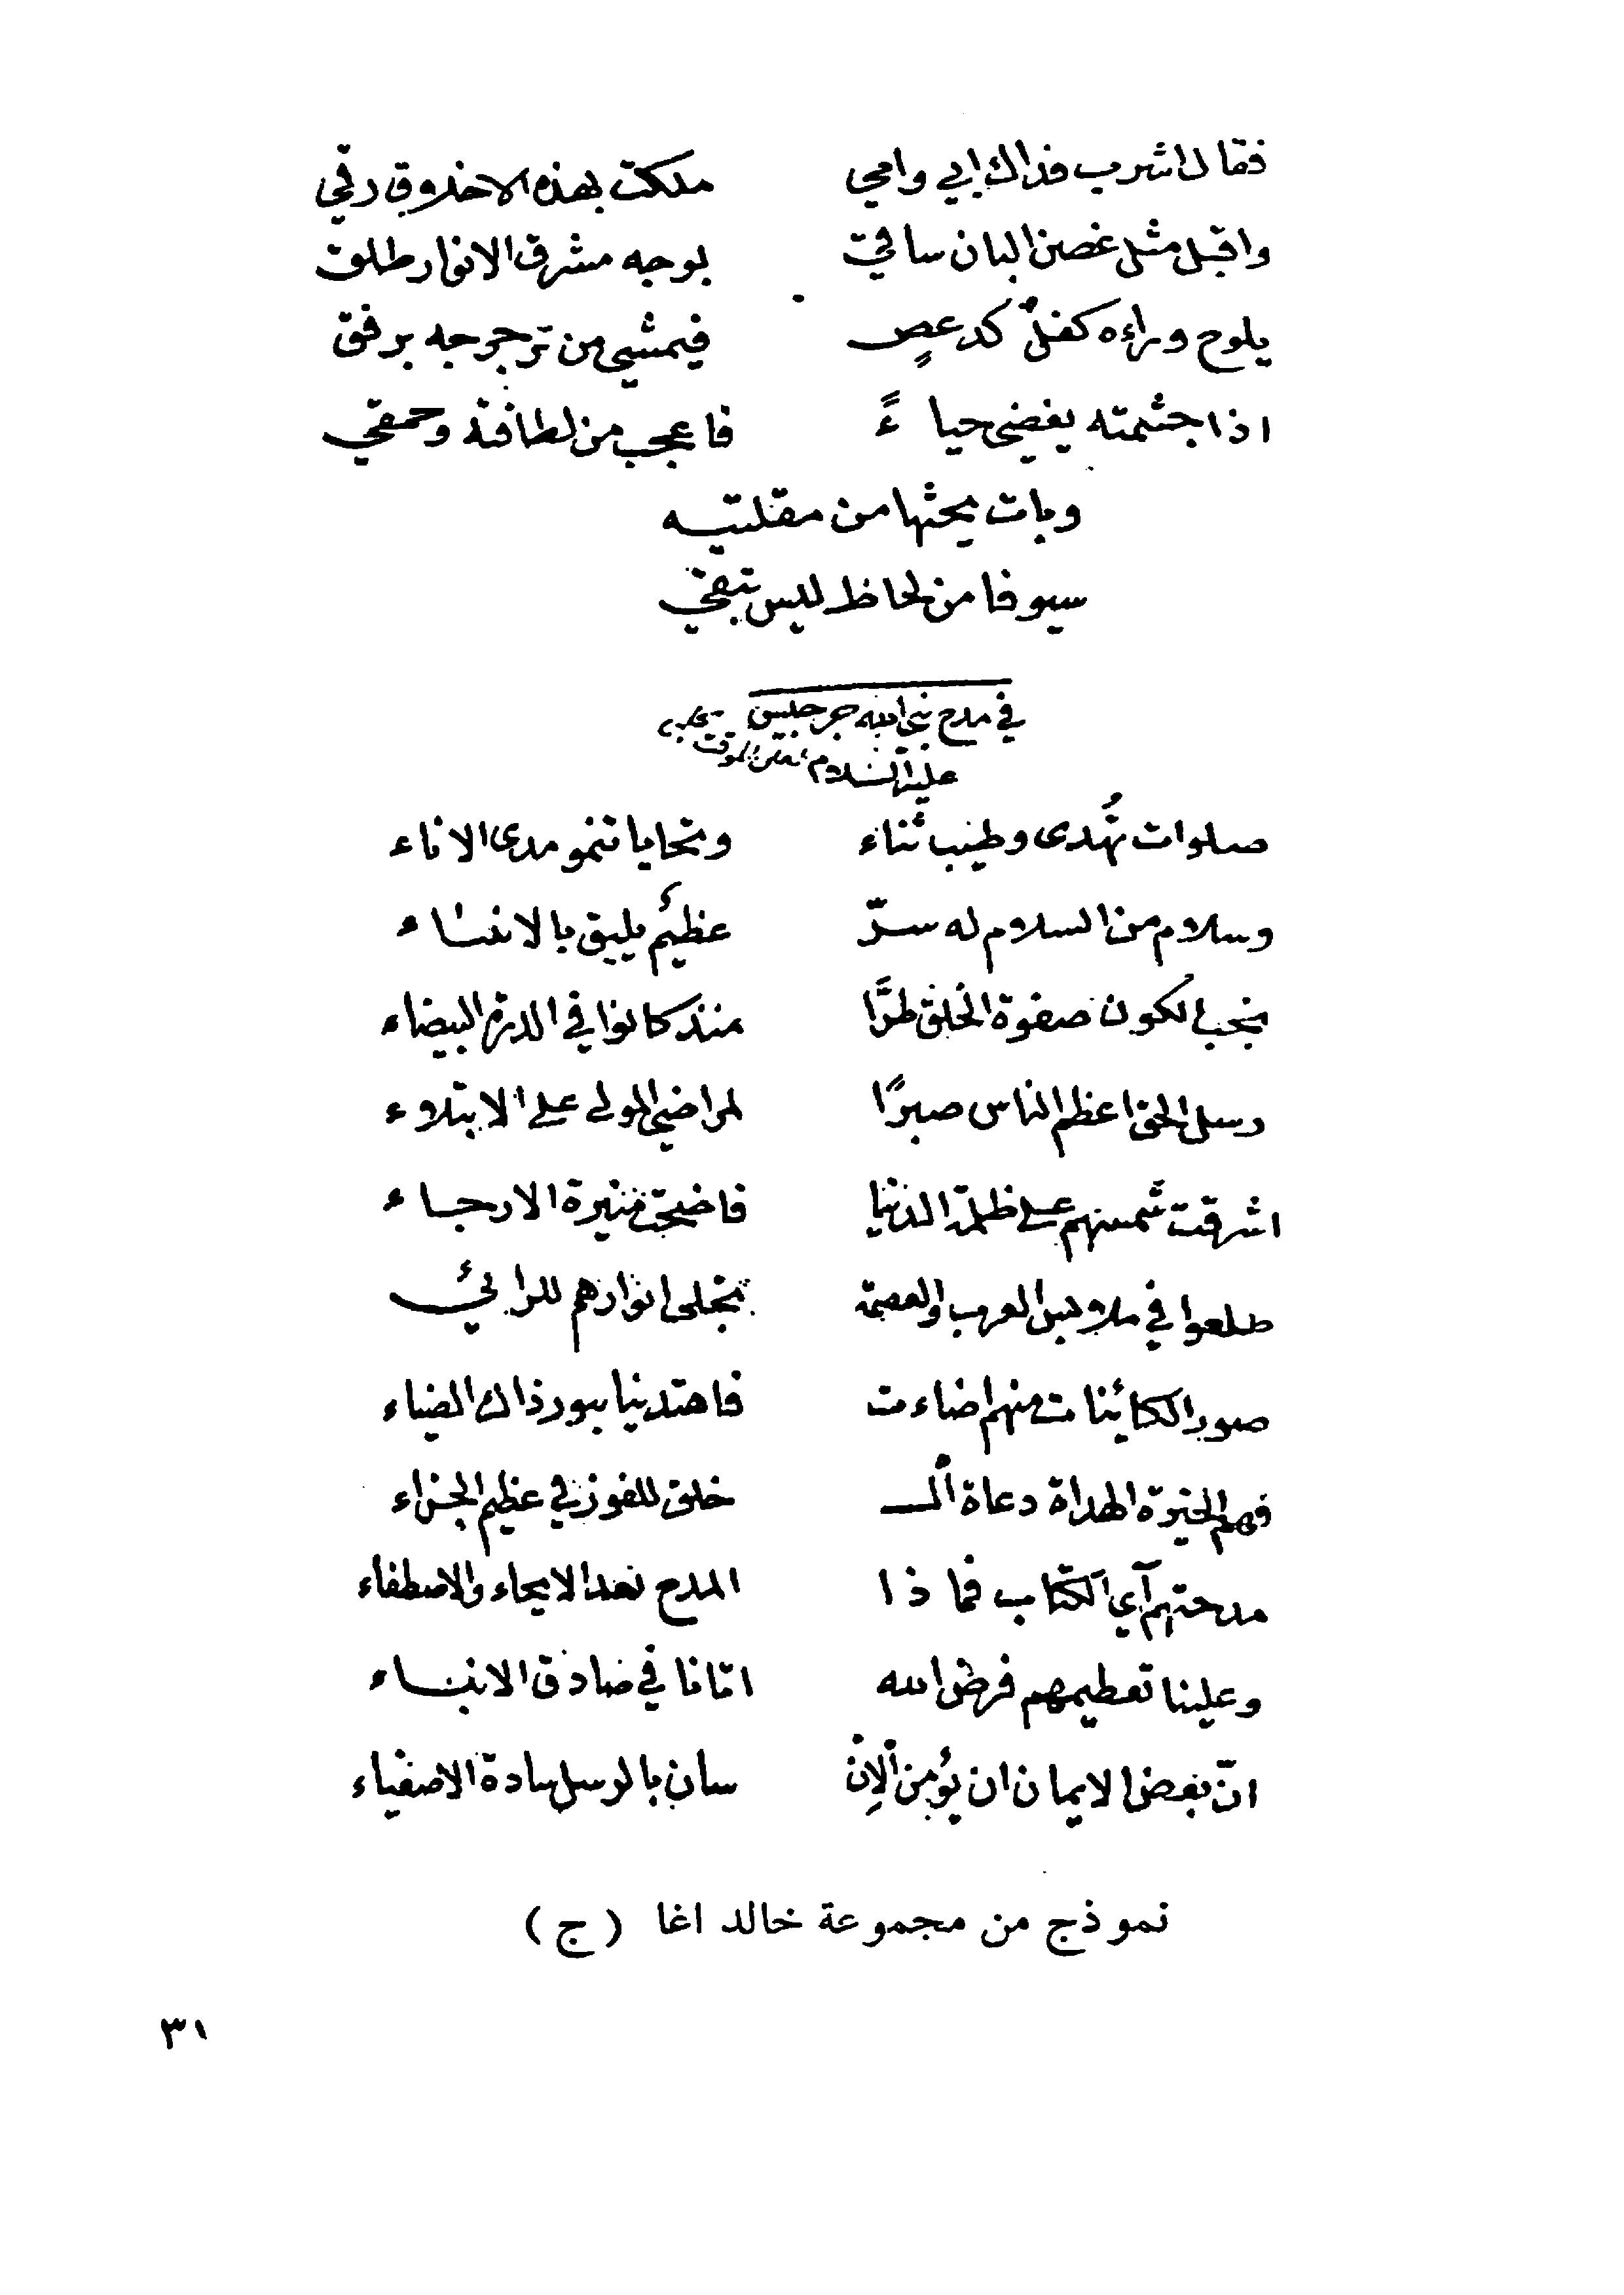 فقال اشرب فداك ابي وامي ملكت بهذه الاخلاق رقي
واقبل مثل غصن البان ساقٍ بوجه مشرق الانوار طلق
يلوح وراءه كفلٌ كدعصٍ فيمشي من ترجرجه برفق
اذا جشمته يغضي حياءً فاعجب من لطافته وحمقي
وبات يحثها من مقلتيه
سيوفا من لحاظ ليس تبقي
في مدح نبي الله جرجليس
عليه السلام
صلوات تُهدى وطيب ثناء وتحايا تنمو مدى الاناء
وسلام من السلام له سرّ عظيم يليق بالانشاء
نجباء لكون صفوة الخلق طرًّا منذ كانوا في الدرة البيضاء
رسل الحق اعظم الناس صبرًا لمراضي المولى على الابتلاء
اشرقت شمسهم على ظلمة الدنيا فاضحت منيرة الارجاء
طلعوا في ملابس القرب والعصمة تتجلى انوارهم للرائي
صور الكائنات منهم اضاءت فاهتدينا بنور ذاك الضياء
فهم الخيرة الهداة دعاة الـ خلق للفوز في عظيم الجزاء
مدحتهم آي الكتاب فما ذا المدح بعد الايحاء والاصطفاء
وعلينا تعظيمهم فرض الله اتانا في صادق الانباء
انّ بعض الايمان ان يؤمن الاِنْ سان بالرسل سادة الاصفياء
نموذج من مجموعة خالد اغا (ج)
٣١